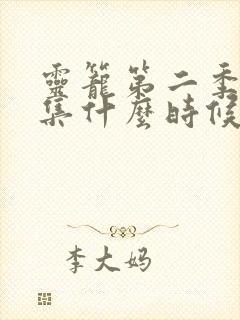 靈籠第二季
集什麼時候
李大妈